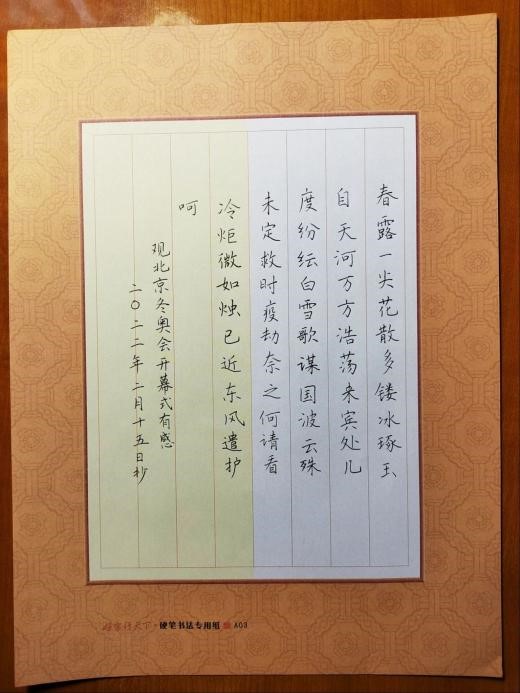 春露一尖花散多镂冰琢玉
自天河万方浩荡来宾处几
度纷纭白雪歌谋国波云殊
未定救时疫劫奈之何请看
冷炬微如烛已近东风遣护
呵
观北京冬奥会开幕式有感
二〇二二年二月十五日抄
硬笔书法专用纸 A03